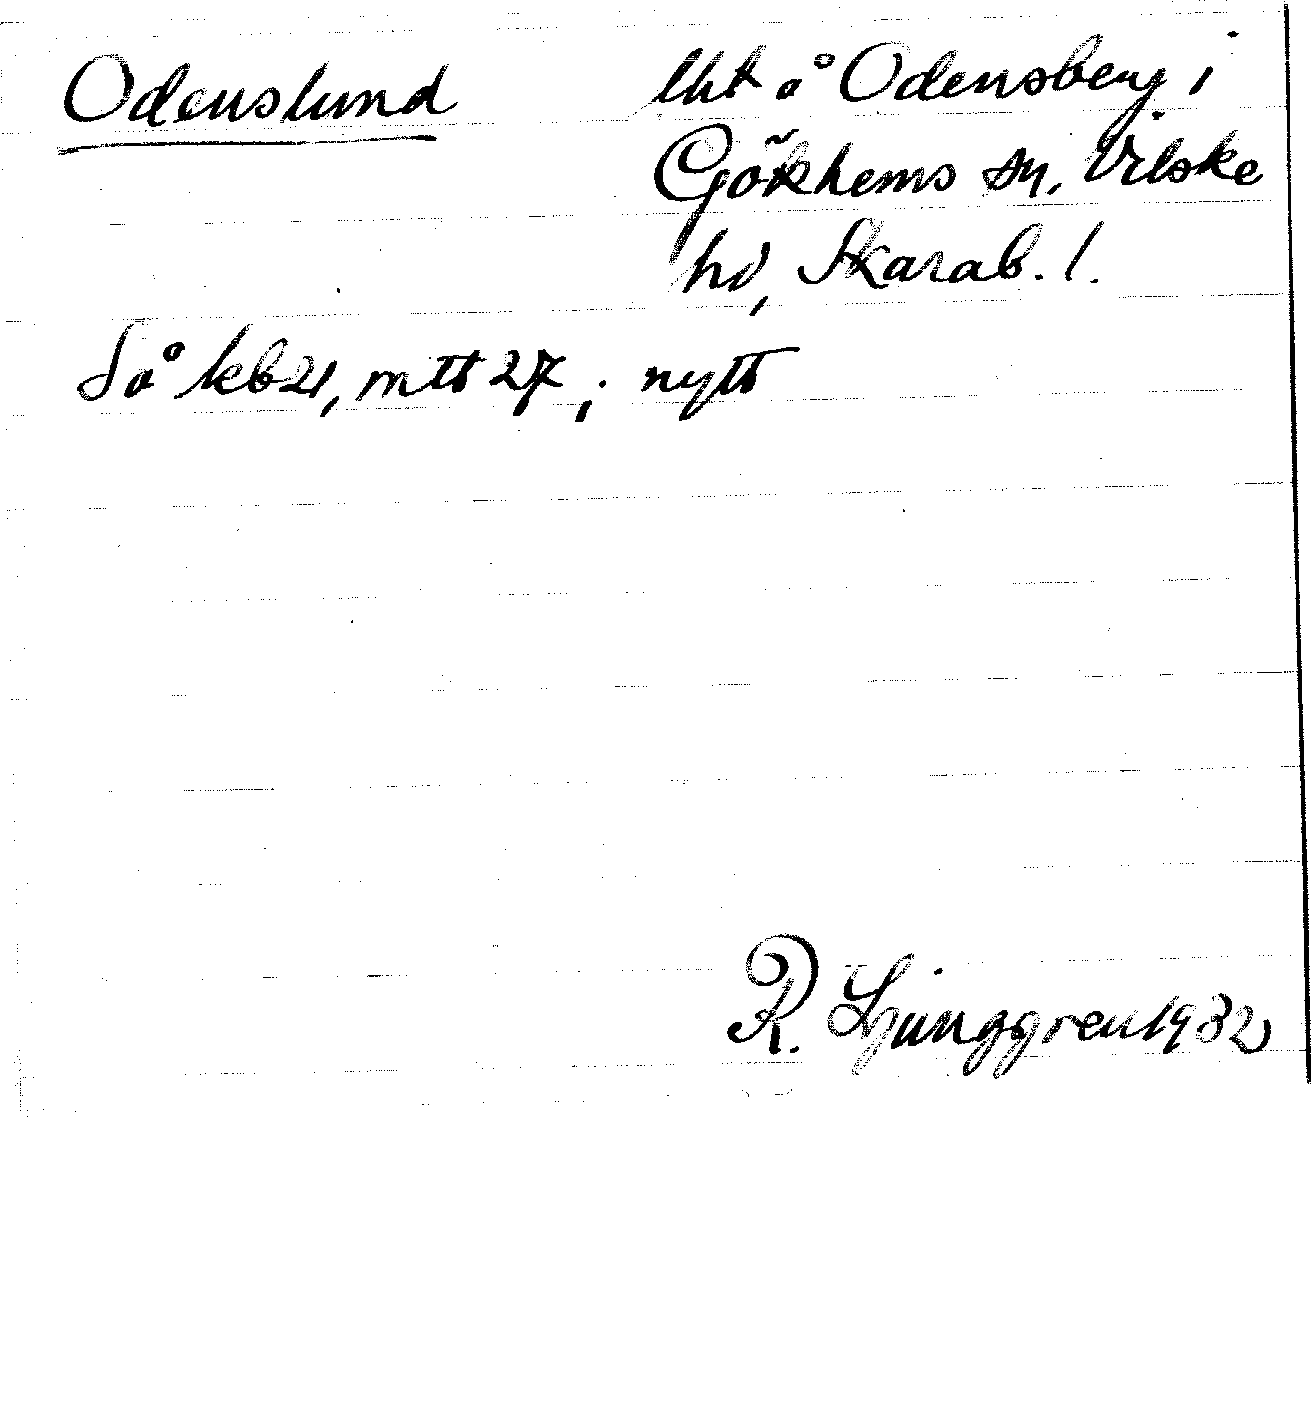 Odenslund
lht å Odensberg i
Gökhems sn, Vilske
hd, Skarab. l.
Så kb 21, mtb 27; nytt
R. Ljunggren 1932